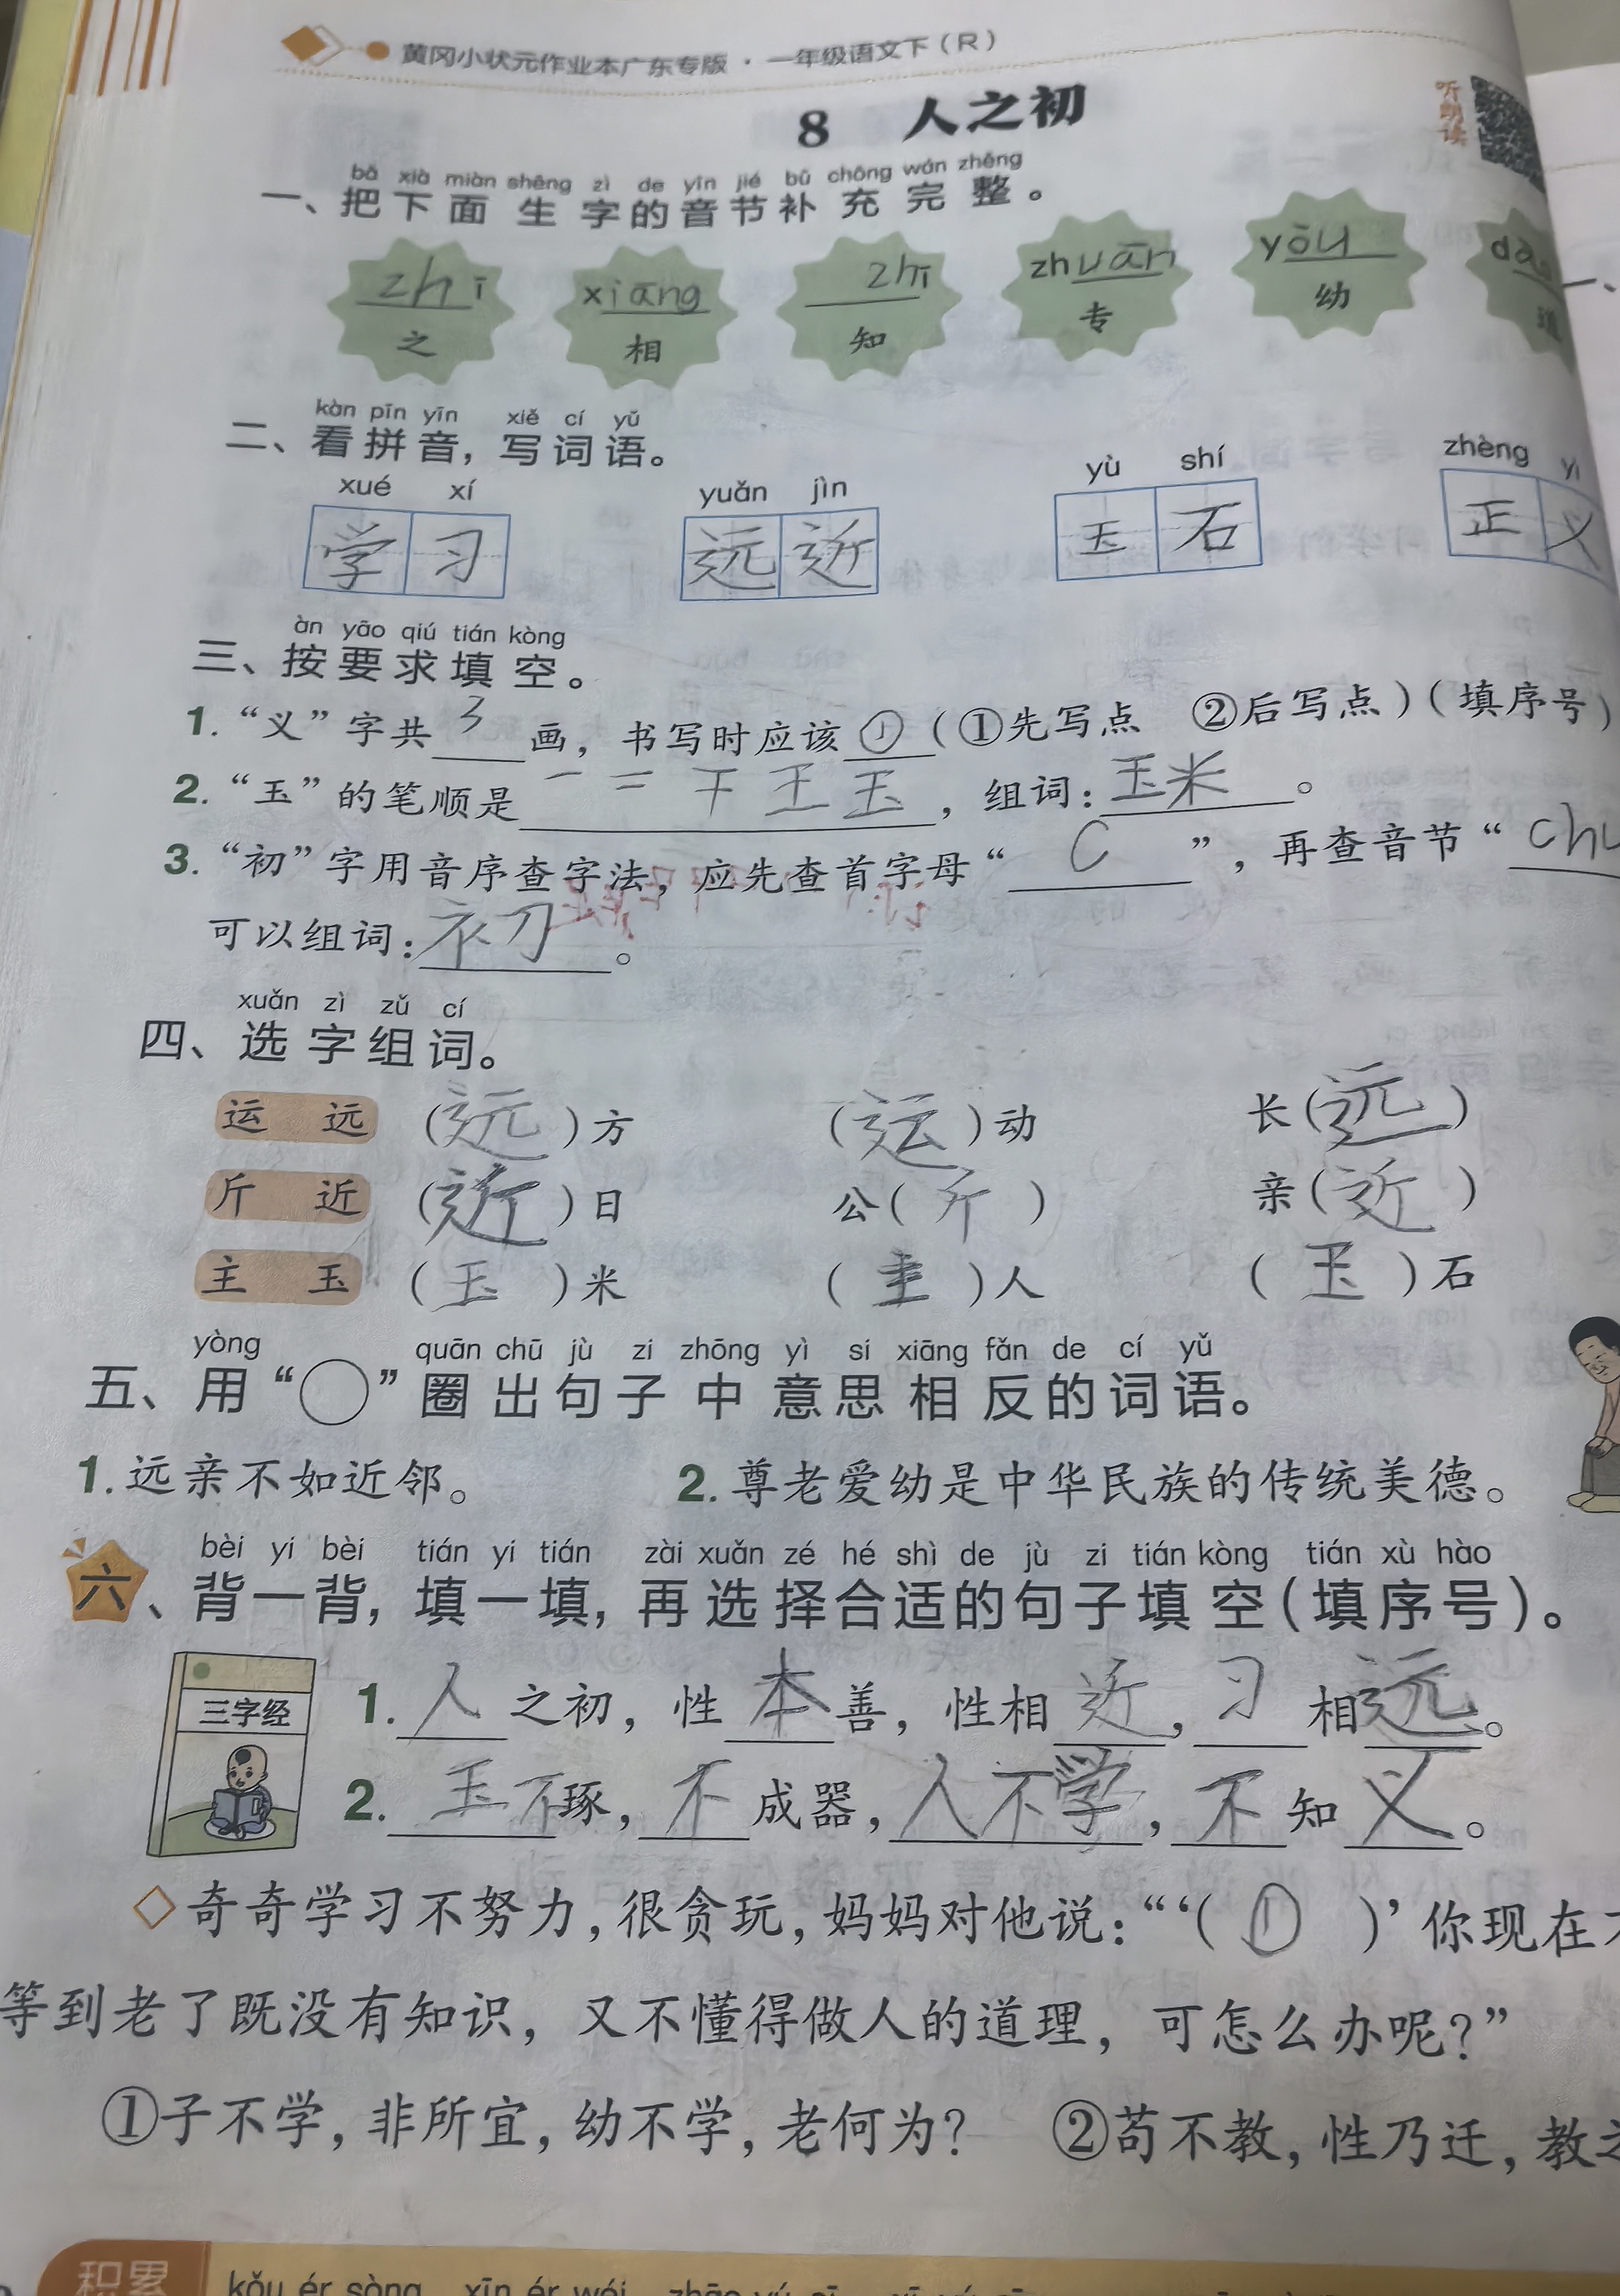 黄冈小状元作业本广东专版·一年级语文下(R)
听朗读
8 人之初
bǎ xià miàn shēng zì de yīn jié bǔ chōng wán zhěng
一、把下面生字的音节补充完整。
zhī xiāng zhī zhuān yōu
之 相 知 专 幼 道
kàn pīn yīn xiě cí yǔ
二、看拼音,写词语。
xué xí yuǎn jìn yù shí zhèng yì
学习 远近 玉石 正义
àn yāo qiú tián kòng
三、按要求填空。
1. “义”字共3画,书写时应该①(①先写点 ②后写点)(填序号)
2. “玉”的笔顺是一 二 干 王 玉,组词:玉米。
3. “初”字用音序查字法,应先查首字母“C”,再查音节“chu
可以组词:衣刀。
xuǎn zì zǔ cí
四、选字组词。
运 远 (远)方 (运)动 长(远)
斤 近 (近)日 公(斤) 亲(近)
主 玉 (玉)米 (主)人 (玉)石
yòng quān chū jù zi zhōng yì si xiāng fǎn de cí yǔ
五、用“○”圈出句子中意思相反的词语。
1.远亲不如近邻。 2.尊老爱幼是中华民族的传统美德。
bèi yi bèi tián yi tián zài xuǎn zé hé shì de jù zi tián kòng tián xù hào
六、背一背,填一填,再选择合适的句子填空(填序号)。
三字经
1.人之初,性本善,性相近,习相远。
2.玉不琢,不成器,人不学,不知义。
◇奇奇学习不努力,很贪玩,妈妈对他说:“‘(①)’你现在不
等到老了既没有知识,又不懂得做人的道理,可怎么办呢?”
①子不学,非所宜,幼不学,老何为? ②苟不教,性乃迁,教之
积累
kǒu ér sòng xīn ér wéi